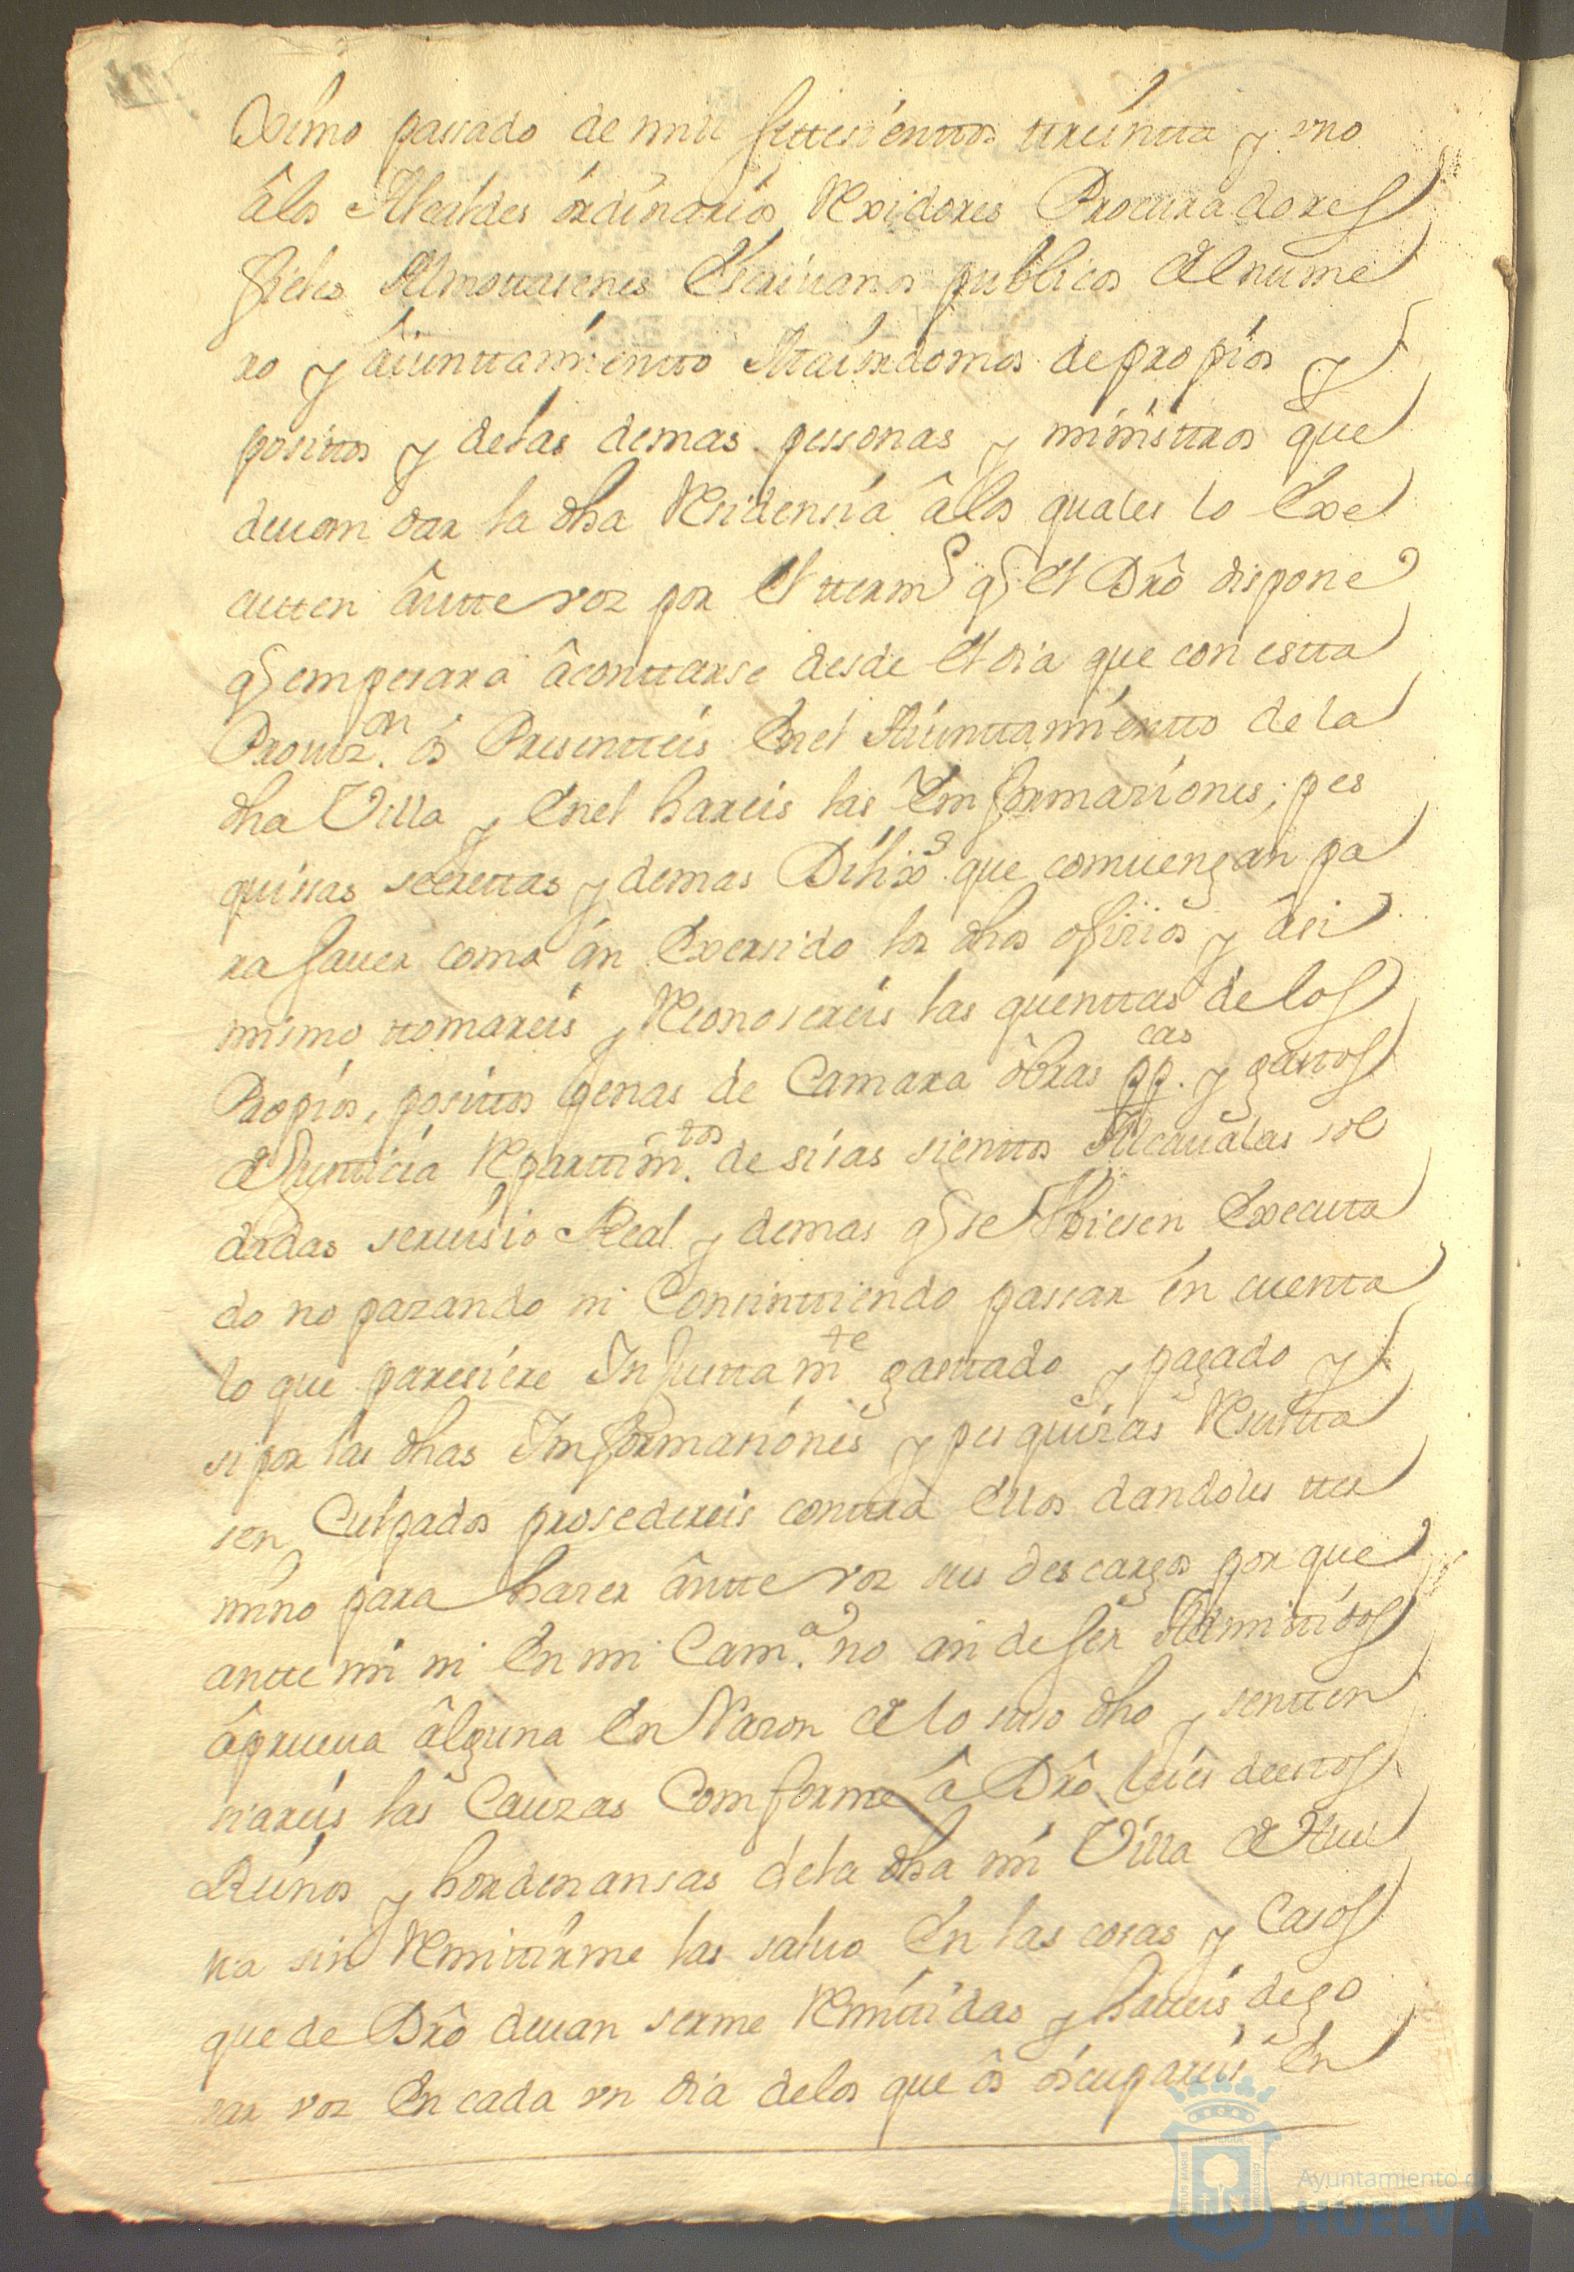 ximo passado de mill settesienttos ttreintta y vno
â los Alcaldes ordinarios Rexidores Procuradores
fieles Almottasenes Escriuanos publicos del nume
ro y aiunttamientto Maiordomos de propios y
positos y de las demas perssonas y ministtros que
deuan dar la dha Residensia â los quales lo Exe
cutten ântte voz por el tterm̃o q̃ el Dr̃o dispone
q̃ empesara â conttarse desde el dia que con estta
Prouiz.on os Presentteis En el Aiunttamientto de la
dha Villa y En el hareis las Informaziones, pes
quissas secrettas y demas Dilix.s que comuengan pa
ra sauer como an Exersido los dhos ofizios y âsi
mismo ttomareis y Reconosereis las quenttas de los
Propios, positos penas de Camara ôbras pp.cas y gastos
de Justticia Reparttim.tos de sisas sienttos Alcaualas sol
dadas seruisio Real y demas q̃ se hbiesen Executa
do no pazando ni Consinttiendo passar en cuentta
lo que paresiere Injustta m.te gasttado y pagado y
si por las dhas Informasiones y pesquizas Resultta
sen Culpados prosedereis conttra ellos dandoles tter
mino para hazer ântte voz sus descargos por que
antte mi ni En mi Cam.a no an de ser Admittidos
â prueua âlguna En Razon de lo suso dho y sentten
siareis las Cauzas Comforme â Dr̃o leies de esttos
Reinos y hordenansas de la dha mi Villa de Huel
ua sin Remittirme las saluo En las cosas y Casos
que de Dr̃o deuan serme Remitidas y haueis de go
zar voz En cada vn dia de los que ôs ôscupareis En
Ayuntamiento de
HUELVA